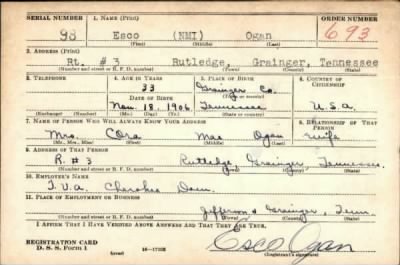 SERIAL NUMBER 1. NAME (Print) ORDER NUMBER
98 Esco (NMI) Ogan 693
(First) (Middle) (Last)
2. ADDRESS (Print)
Rt. # 3 Rutledge, Grainger, Tennessee
(Number and street or R. F. D. number) (Town) (County) (State)
3. TELEPHONE 4. AGE IN YEARS 5. PLACE OF BIRTH 6. COUNTRY OF CITIZENSHIP
33 Grainger Co.
DATE OF BIRTH (Town or county)
Nov. 18. 1906 Tennessee U.S.A.
(Exchange) (Number) (Mo.) (Day) (Yr.) (State or country)
7. NAME OF PERSON WHO WILL ALWAYS KNOW YOUR ADDRESS 8. RELATIONSHIP OF THAT PERSON
Mrs. Cora Mae Ogan wife
(Mr., Mrs., Miss) (First) (Middle) (Last)
9. ADDRESS OF THAT PERSON
R. # 3 Rutledge, Grainger, Tennessee.
(Number and street or R. F. D. number) (Town) (County) (State)
10. EMPLOYER'S NAME
T.V.A. Cherokee Dam.
11. PLACE OF EMPLOYMENT OR BUSINESS
Jefferson & Grainger, Tenn.
(Number and street or R. F. D. number) (Town) (County) (State)
I AFFIRM THAT I HAVE VERIFIED ABOVE ANSWERS AND THAT THEY ARE TRUE.
REGISTRATION CARD
D. S. S. Form 1 (over) 16-17105 Esco Ogan
(Registrant's signature)